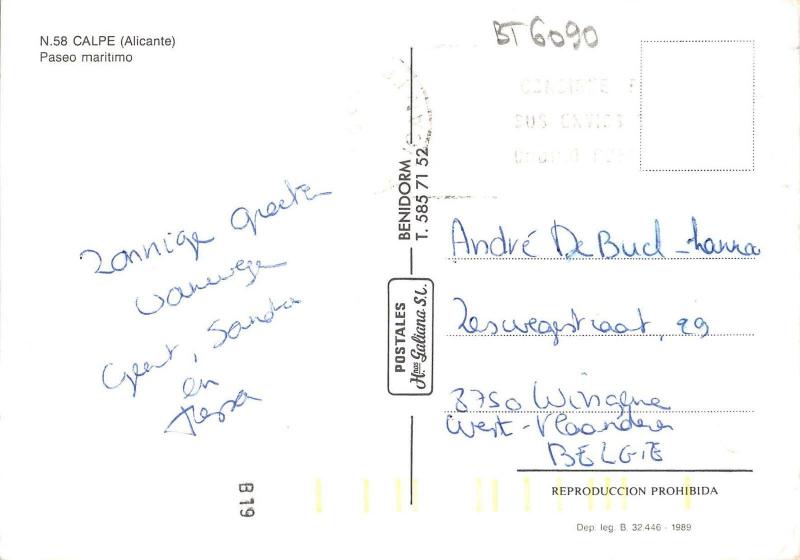 N.58 CALPE (Alicante)
Paseo maritimo
BT6090
Zonnige Groeten
vanwege
Geert, Sandra
en
BENIDORM
T. 585 71 52
POSTALES
Hnos Galiana S.L.
CONSIGNE
SUS ENVIOS
André De Bud
Zeswegestraat, 29
8750 Wingene
West-Vlaanderen
BELGIË
B 19
REPRODUCCION PROHIBIDA
Dep. leg. B. 32.446 - 1989